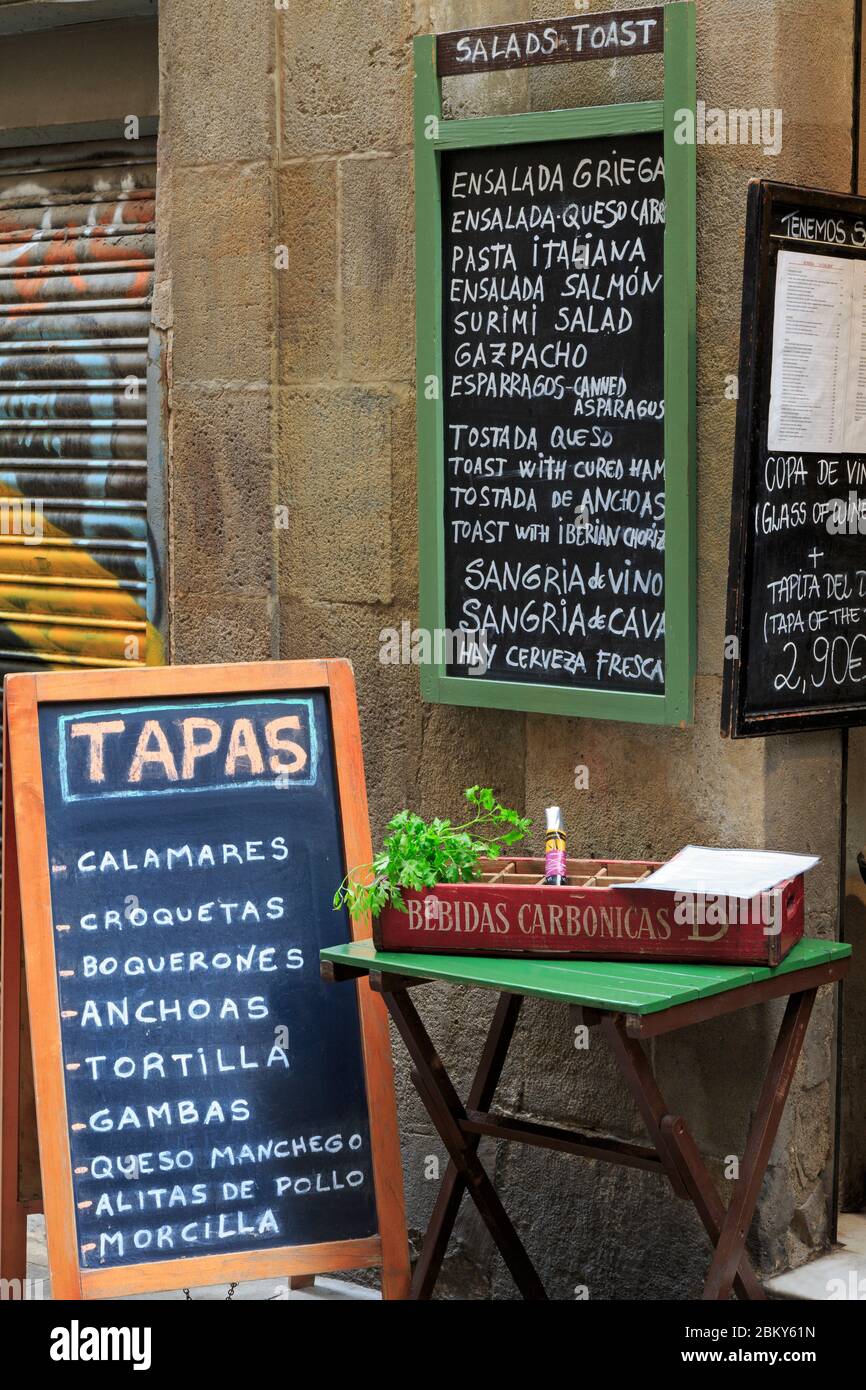 SALADS-TOAST
ENSALADA GRIEGA
ENSALADA·QUESO CABR
PASTA ITALIANA
ENSALADA SALMÓN
SURIMI SALAD
GAZPACHO
ESPARRAGOS-CANNED
ASPARAGUS
TOSTADA QUESO
TOAST WITH CURED HAM
TOSTADA DE ANCHOAS
TOAST WITH IBERIAN CHORIZ
SANGRIA de VINO
SANGRIA de CAVA
HAY CERVEZA FRESCA
TENEMOS S
COPA DE VIN
(GLASS OF WINE
+
TAPITA DEL D
(TAPA OF THE
2,90€
TAPAS
- CALAMARES
- CROQUETAS
- BOQUERONES
- ANCHOAS
- TORTILLA
- GAMBAS
- QUESO MANCHEGO
- ALITAS DE POLLO
- MORCILLA
BEBIDAS CARBÓNICAS D
alamy
Image ID: 2BKY61N
www.alamy.com